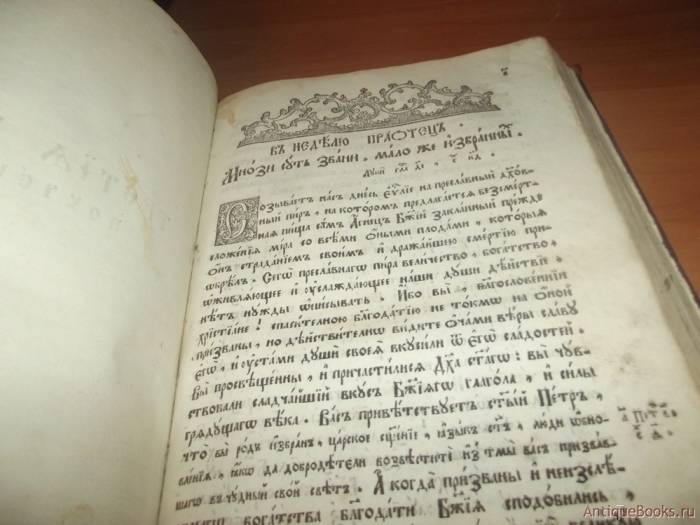 Въ недѣлю праотецъ.
Мнози суть звани, мало же избранны.
Созываетъ насъ днесь еѵⷢ҇лїе на преславный дх҃ов-
ный пиръ, на которомъ предлагается безсмерт-
ная пища самъ Агнецъ Бж҃їй закланный прежде
сложенїѧ мїра со всѣми ѻными плодами, которыѧ
ѻнъ страданїемъ своимъ и дражайшею смертїю прї-
ѡбрѣлъ. Сегѡ преславнагѡ пира величество, богатство,
ѡживлѧющее и ѹслаждающее наши души дѣйствїе
нѣтъ нужды ѡписывать. Ибо вы, бл҃гословеннїи
хрїстїане! спасителною бл҃годатїю не токмѡ на ѻной
призваны, но дѣйствителнѡ видите ѻчами вѣры славу
егѡ, и ѹстами души своеѧ вкусили ѿ егѡ сладостей.
Вы просвѣщенны, и причастилисѧ Дх҃а ст҃агѡ: вы чув-
ствовали сладчайшїй вкусъ Бж҃їѧгѡ гл҃гола, и силы
грѧдущагѡ вѣка. Васъ привѣтствуетъ ст҃ый Петръ,
что вы родъ избранъ, царское сщ҃енїе, ѧзыкъ ст҃ъ, люди ѡбно-
вленїѧ, ꙗкѡ да добродѣтели возвѣстите изъ тмы васъ призвав-
шагѡ въ чудный свой свѣтъ. А когда призваны и неизслѣ-
богатства благодати Бж҃їѧ сподобились,
а Петр
AntiqueBooks.ru